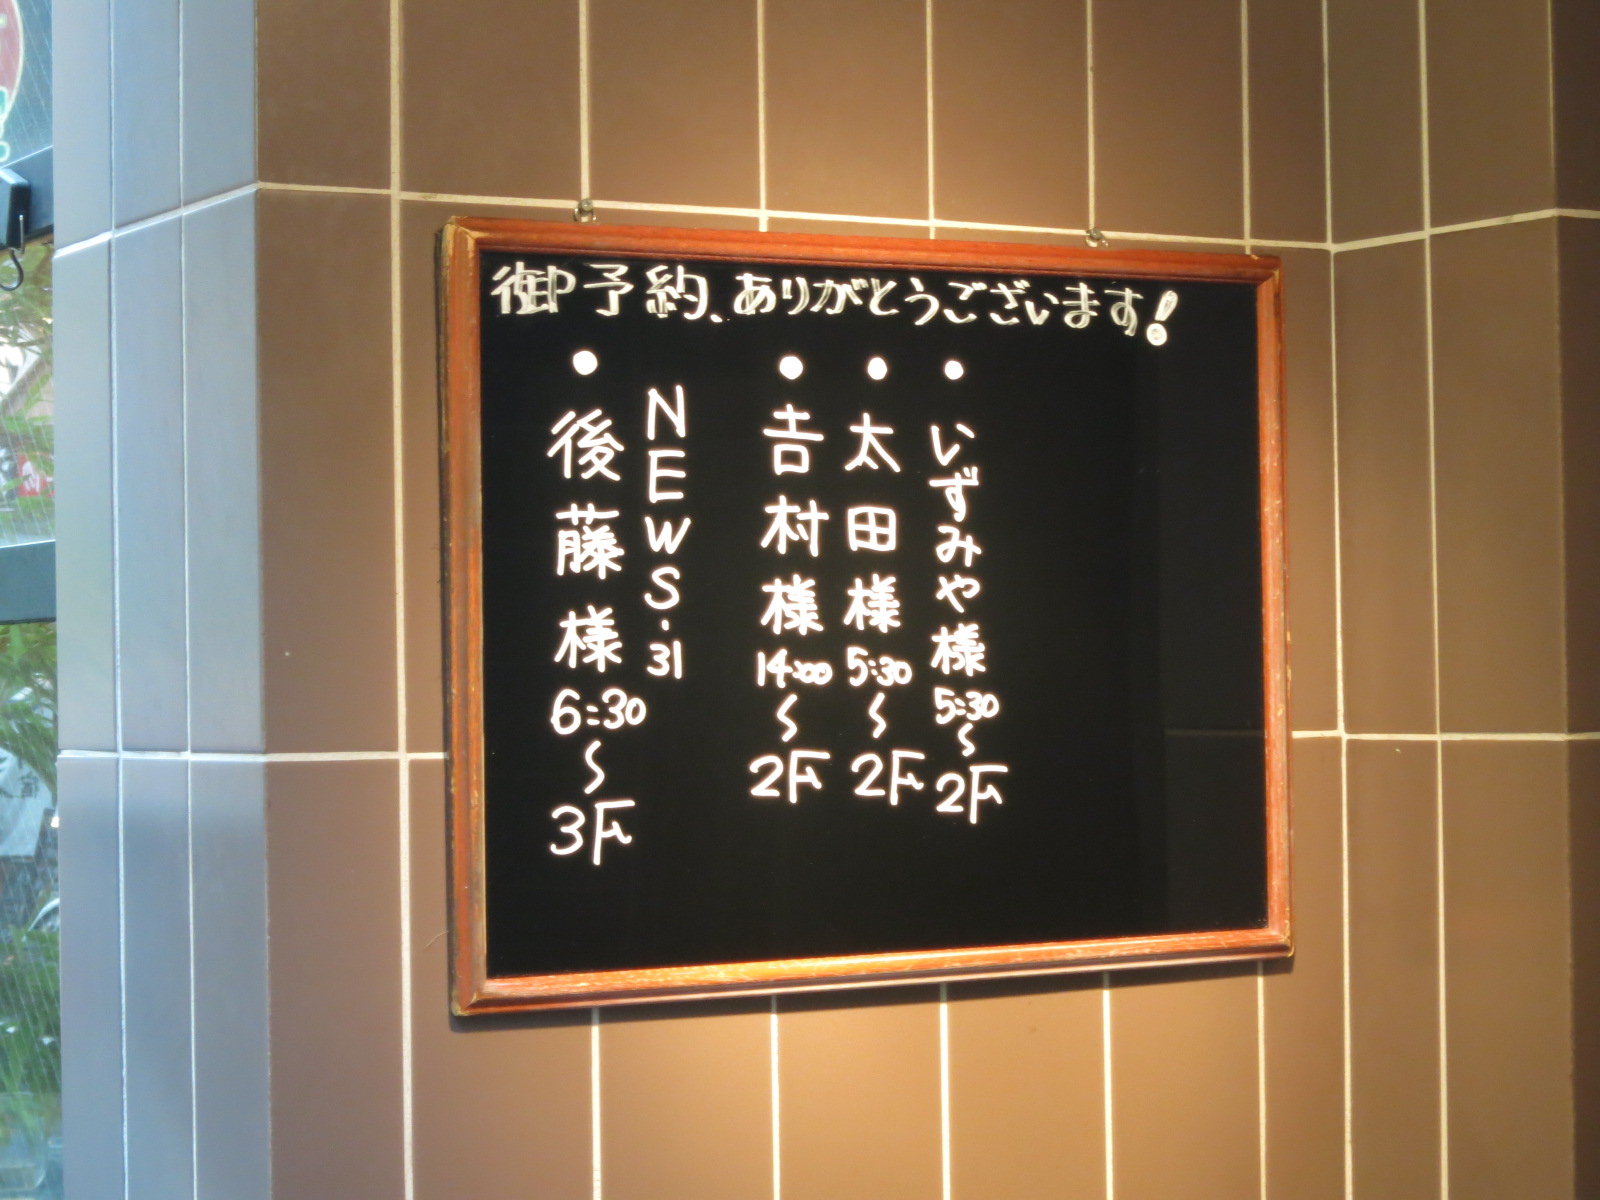 御予約、ありがとうございます!
• いずみや様 5:30〜2F
• 太田様 5:30〜2F
• 𠮷村様 14:00〜2F
NEWS・31
• 後藤様 6:30〜3F